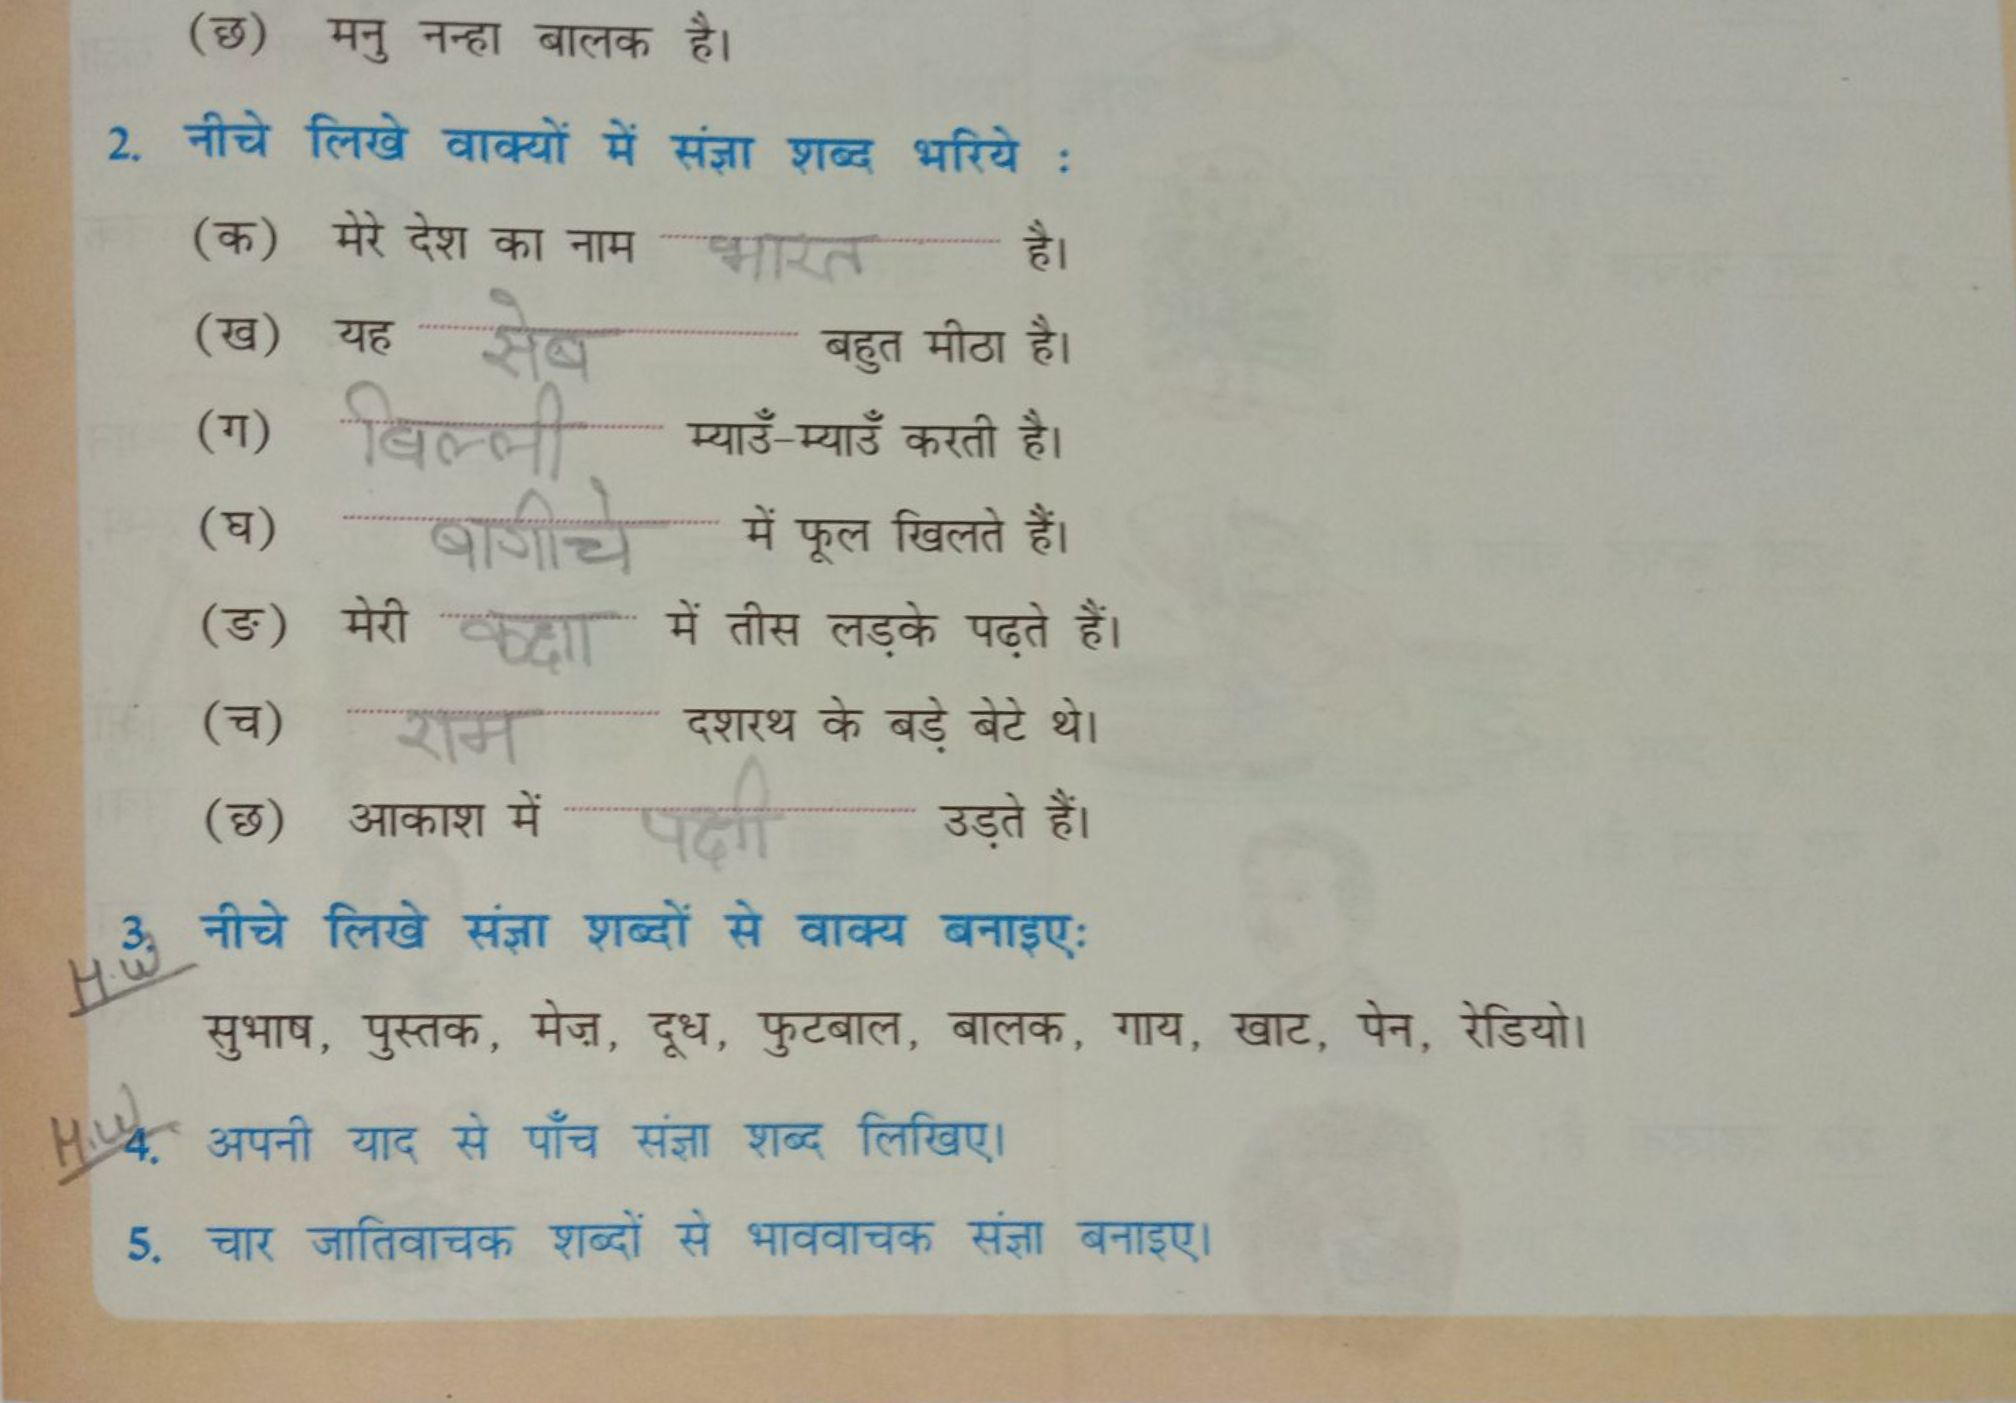 (छ) मनु नन्हा बालक है।
2. नीचे लिखे वाक्यों में संज्ञा शब्द भरिये :
(क) मेरे देश का नाम भारत है।
(ख) यह सेब बहुत मीठा है।
(ग) बिल्ली म्याउँ-म्याउँ करती है।
(घ) बागीचे में फूल खिलते हैं।
(ङ) मेरी कक्षा में तीस लड़के पढ़ते हैं।
(च) राम दशरथ के बड़े बेटे थे।
(छ) आकाश में पक्षी उड़ते हैं।
3. नीचे लिखे संज्ञा शब्दों से वाक्य बनाइए:
H.W
सुभाष, पुस्तक, मेज़, दूध, फुटबाल, बालक, गाय, खाट, पेन, रेडियो।
H.W 4. अपनी याद से पाँच संज्ञा शब्द लिखिए।
5. चार जातिवाचक शब्दों से भाववाचक संज्ञा बनाइए।